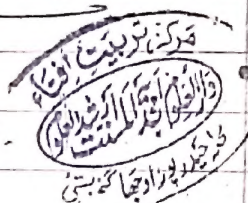 مرکز تربیت افتاء
دارالعلوم امجدیہ اہلسنت ارشد العلوم
اوجھا گنج بستی